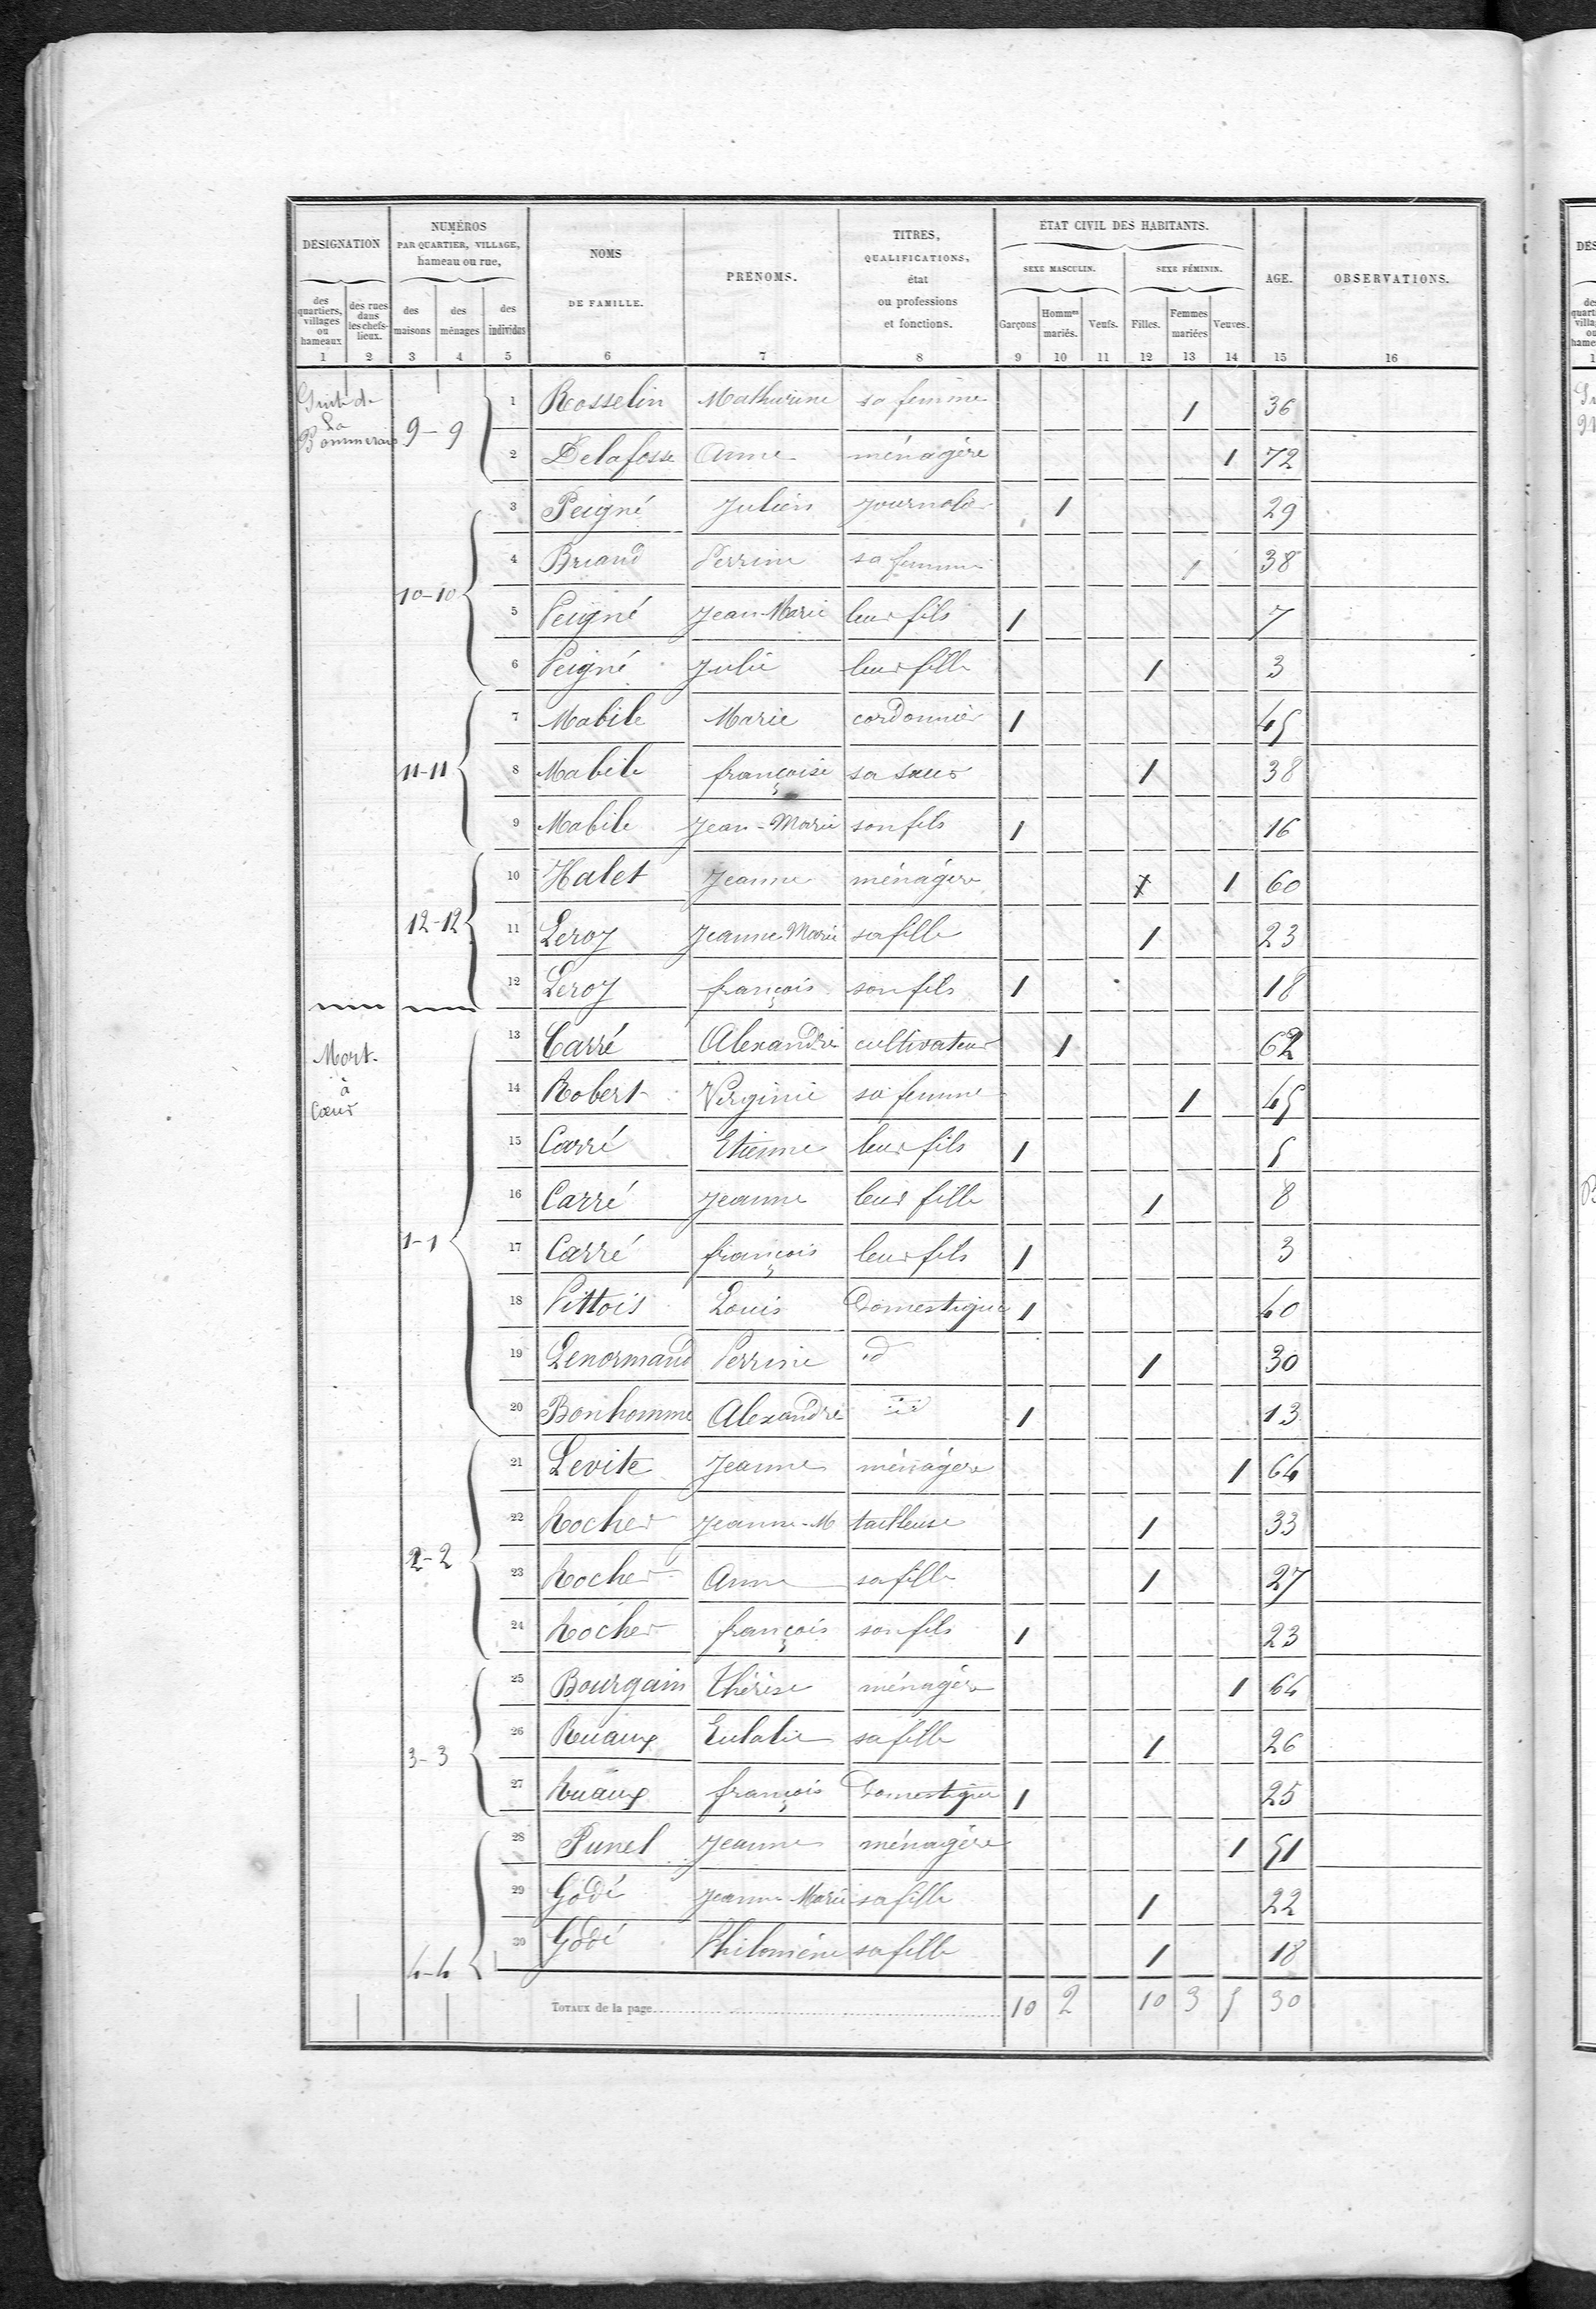 DESIGNATION | NUMÉROS PAR QUARTIER, VILLAGE, hameau ou rue, | NOMS DE FAMILLE. | PRENOMS. | TITRES, QUALIFICATIONS, état ou professions et fonctions. | ETAT CIVIL DES HABITANTS. | AGE. | OBSERVATIONS.
SEXE MASCULIN. | SEXE FÉMININ.
des quartiers, villages ou hameaux | des rues dans les chefs-lieux. | des maisons | des ménages | des individus | Garçons | Hommes mariés. | Veufs. | Filles. | Femmes mariées | Veuves.
1 2 3 4 5 6 7 8 9 10 11 12 13 14 15 16
Suite de La Pommerais
9-9
1 Rosselin Mathurine sa femme 1 36
2 Delafosse Anne ménagère 1 72
10-10
3 Peigné Julien journalier 1 29
4 Briand Perrine sa femme 1 38
5 Peigné Jean-Marie leur fils 1 7
6 Peigné Julie leur fille 1 3
11-11
7 Mabile Marie cordonnier 1 45
8 Mabile françoise sa sœur 1 38
9 Mabile Jean-Marie son fils 1 16
12-12
10 Halet Jeanne ménagère 1 60
11 Leroy Jeanne Marie sa fille 1 23
12 Leroy françois son fils 1 18
Mort-à Cœur
1-1
13 Carré Alexandre cultivateur 1 62
14 Robert Virginie sa femme 1 45
15 Carré Etienne leur fils 1 5
16 Carré Jeanne leur fille 1 8
17 Carré françois leur fils 1 3
18 Vittois Louis Domestique 1 40
19 Lenormand Perrine id 1 30
20 Bonhomme Alexandre id 1 13
2-2
21 Levite Jeanne ménagère 1 64
22 Rocher Jeanne-M tailleuse 1 33
23 Rocher Anne sa fille 1 27
24 Rocher françois son fils 1 23
3-3
25 Bourgain thérèse ménagère 1 64
26 Ruaux Eulalie sa fille 1 26
27 Ruaux françois Domestique 1 25
4-4
28 Punel Jeanne ménagère 1 51
29 Godé Jeanne Marie sa fille 1 22
30 Godé Philomène sa fille 1 18
TOTAUX de la page 10 2 10 3 5 30